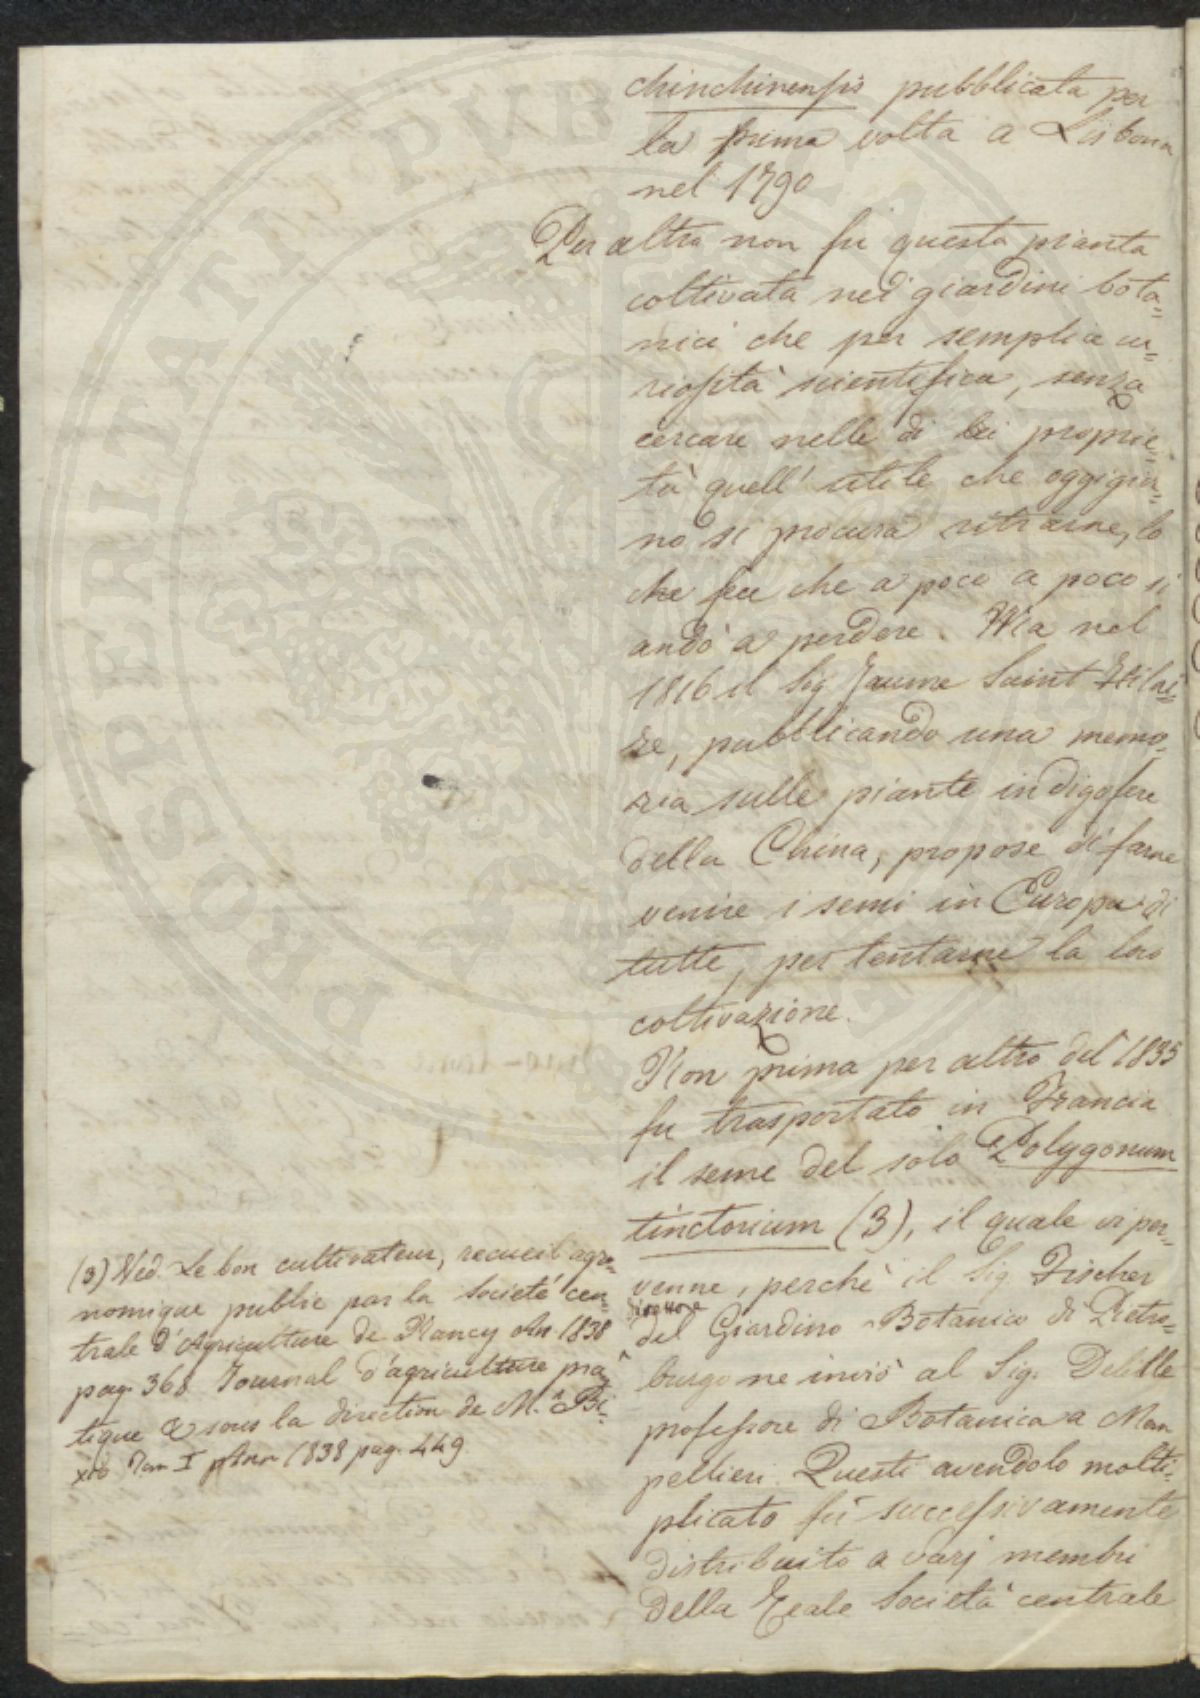 chinchinensis pubblicata per
la prima volta a Lisbona
nel 1790
Per altro non fu questa pianta
coltivata nei giardini bota=
nici che per semplice cu=
riosità scientifica, senza
cercare nelle di lei proprie=
tà quell' utile che oggigior=
no si procura ritrarne, lo
che fece che a poco a poco si
andò a perdere. Ma nel
1816 il Sig. Jaume Saint Hilai=
re, pubblicando una memo=
ria sulle piante indigofere
della China, propose di farne
venire i semi in Europa di
tutte, per tentarne la loro
coltivazione.
Non prima per altro del 1835
fu trasportato in Francia
il seme del solo Polygonum
tinctorium (3), il quale vi per=
venne, perchè il Sig. Fischer
direttore
del Giardino Botanico di Pietro=
burgo ne inviò al Sig. Delille
professore di Botanica a Mon
pellieri. Questi avendolo molti=
plicato fù successivamente
distribuito a varj membri
della Reale Società centrale
(3) Ved. Le bon cultivateur, recueil agro=
nomique publié par la Societé cen=
trale d'Agriculture de Nancy An 1838
pag. 368 Journal d'agriculture pra=
tique & sous la direction de M.r Bi=
xio Tom I Ann 1838 pag. 449
PROSPERITATI PVBLICAE